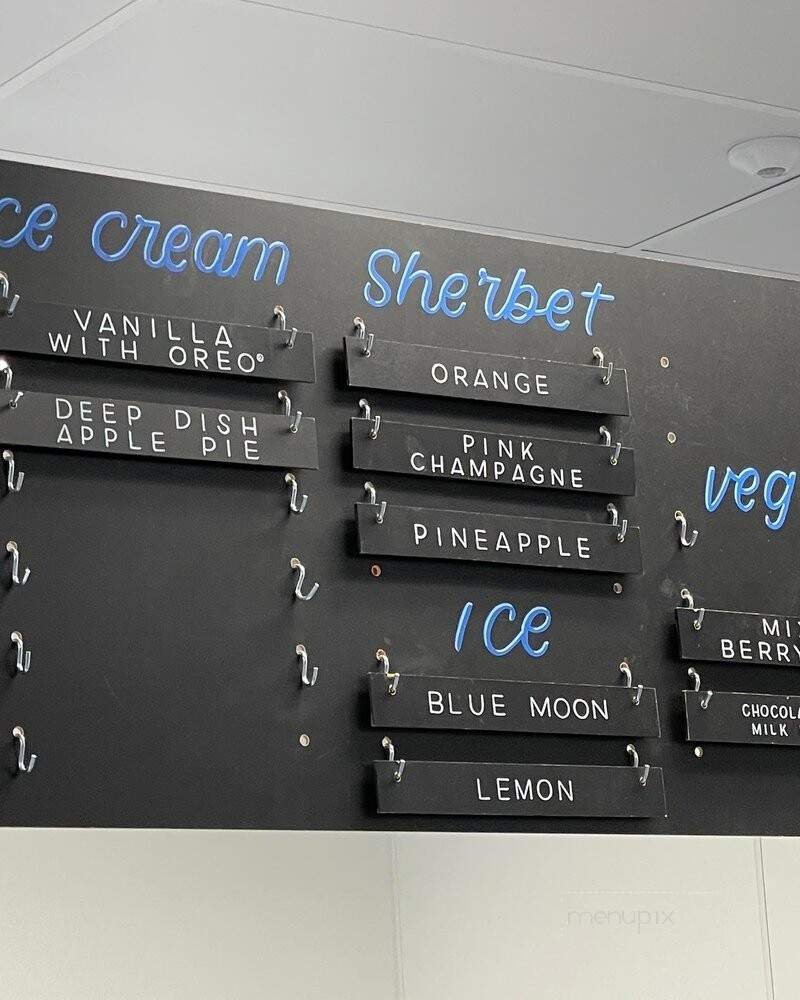 ce cream
VANILLA
WITH OREO®
DEEP DISH
APPLE PIE
Sherbet
ORANGE
PINK
CHAMPAGNE
PINEAPPLE
ICE
BLUE MOON
LEMON
veg
MI
BERRY
CHOCOLA
MILK
menupix